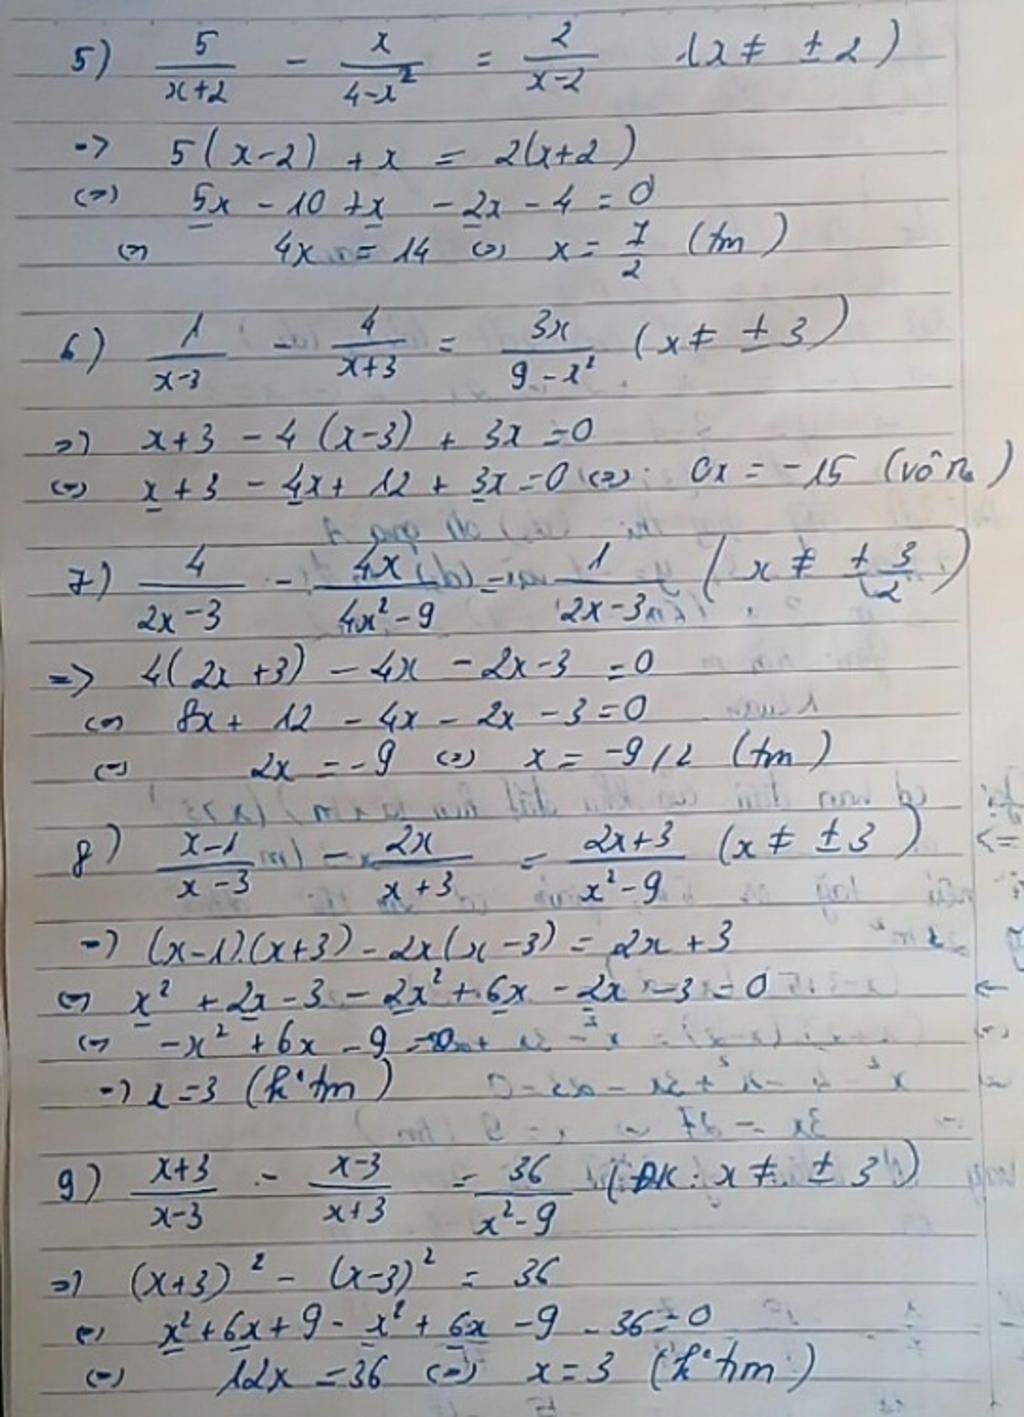 5) 5/(x+2) - x/(4-x²) = 2/(x-2) (x ≠ ±2)
=> 5(x-2) + x = 2(x+2)
(=) 5x - 10 + x - 2x - 4 = 0
(=) 4x = 14 (=) x = 7/2 (tm)
6) 1/(x-3) - 4/(x+3) = 3x/(9-x²) (x ≠ ±3)
=> x+3 - 4(x-3) + 3x = 0
(=) x + 3 - 4x + 12 + 3x = 0 (=) 0x = -15 (vô n0)
7) 4/(2x-3) - 4x/(4x²-9) = 1/(2x-3) (x ≠ ±3/2)
=> 4(2x+3) - 4x - 2x - 3 = 0
(=) 8x + 12 - 4x - 2x - 3 = 0
(=) 2x = -9 (=) x = -9/2 (tm)
8) (x-1)/(x-3) - 2x/(x+3) = (2x+3)/(x²-9) (x ≠ ±3)
=> (x-1).(x+3) - 2x(x-3) = 2x + 3
(=) x² + 2x - 3 - 2x² + 6x - 2x - 3 = 0
(=) -x² + 6x - 9 = 0
=> x = 3 (k°tm)
9) (x+3)/(x-3) - (x-3)/(x+3) = 36/(x²-9) (ĐK: x ≠ ±3)
=> (x+3)² - (x-3)² = 36
(=) x² + 6x + 9 - x² + 6x - 9 - 36 = 0
(=) 12x = 36 (=) x = 3 (k°tm)